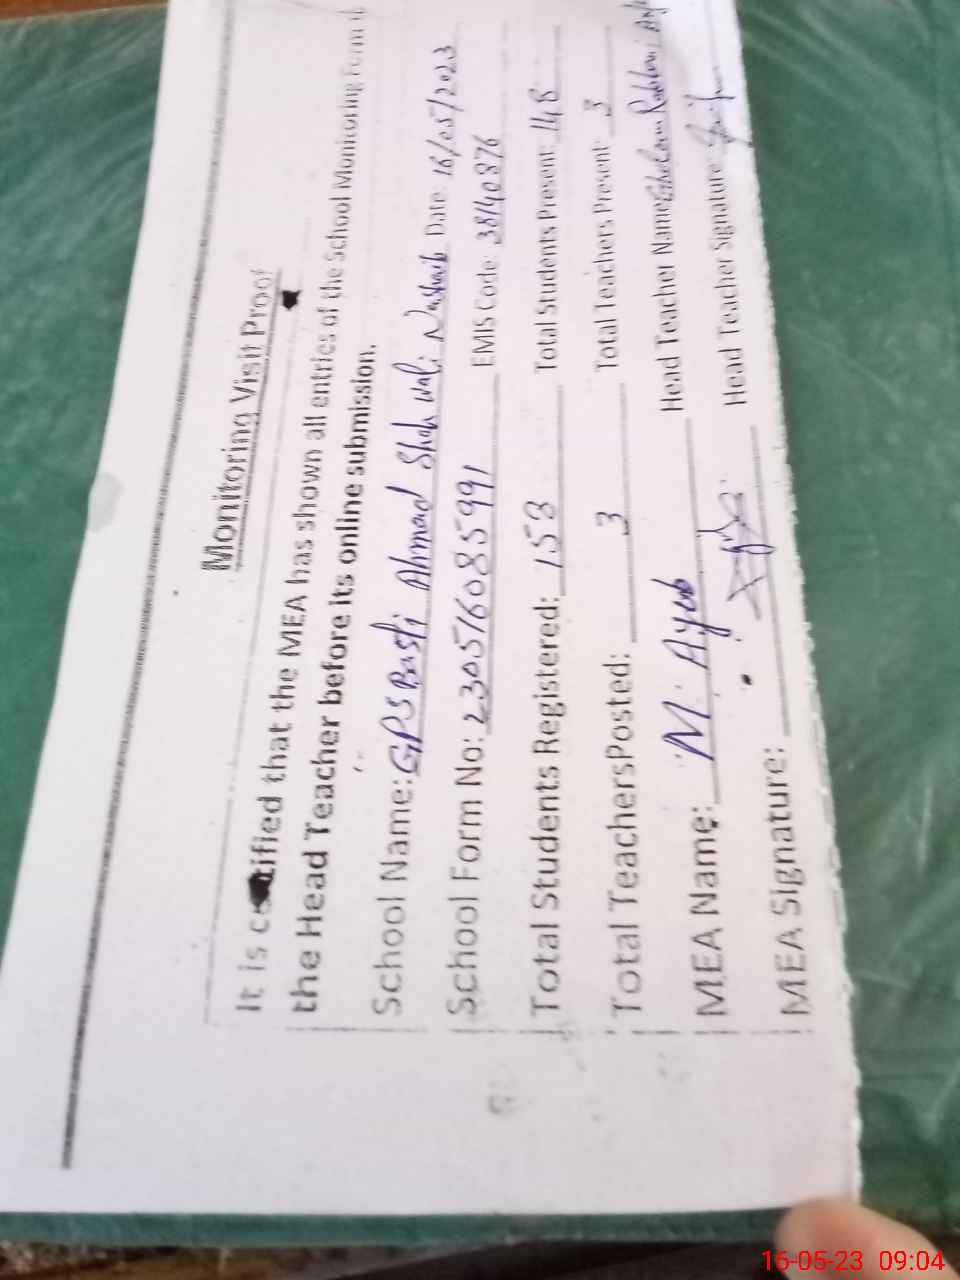 Monitoring Visit Proof
It is certified that the MEA has shown all entries of the School Monitoring Form
the Head Teacher before its online submission.
School Name: GPS Basti Ahmad Shah Wali Nashaib Date: 16/05/2023
School Form No: 230516085991 EMIS Code: 38140876
Total Students Registered: 153 Total Students Present: 148
Total TeachersPosted: 3 Total Teachers Present: 3
MEA Name: M. Ayub Head Teacher Name: Ghulam
MEA Signature: Head Teacher Signature:
16-05-23 09:04